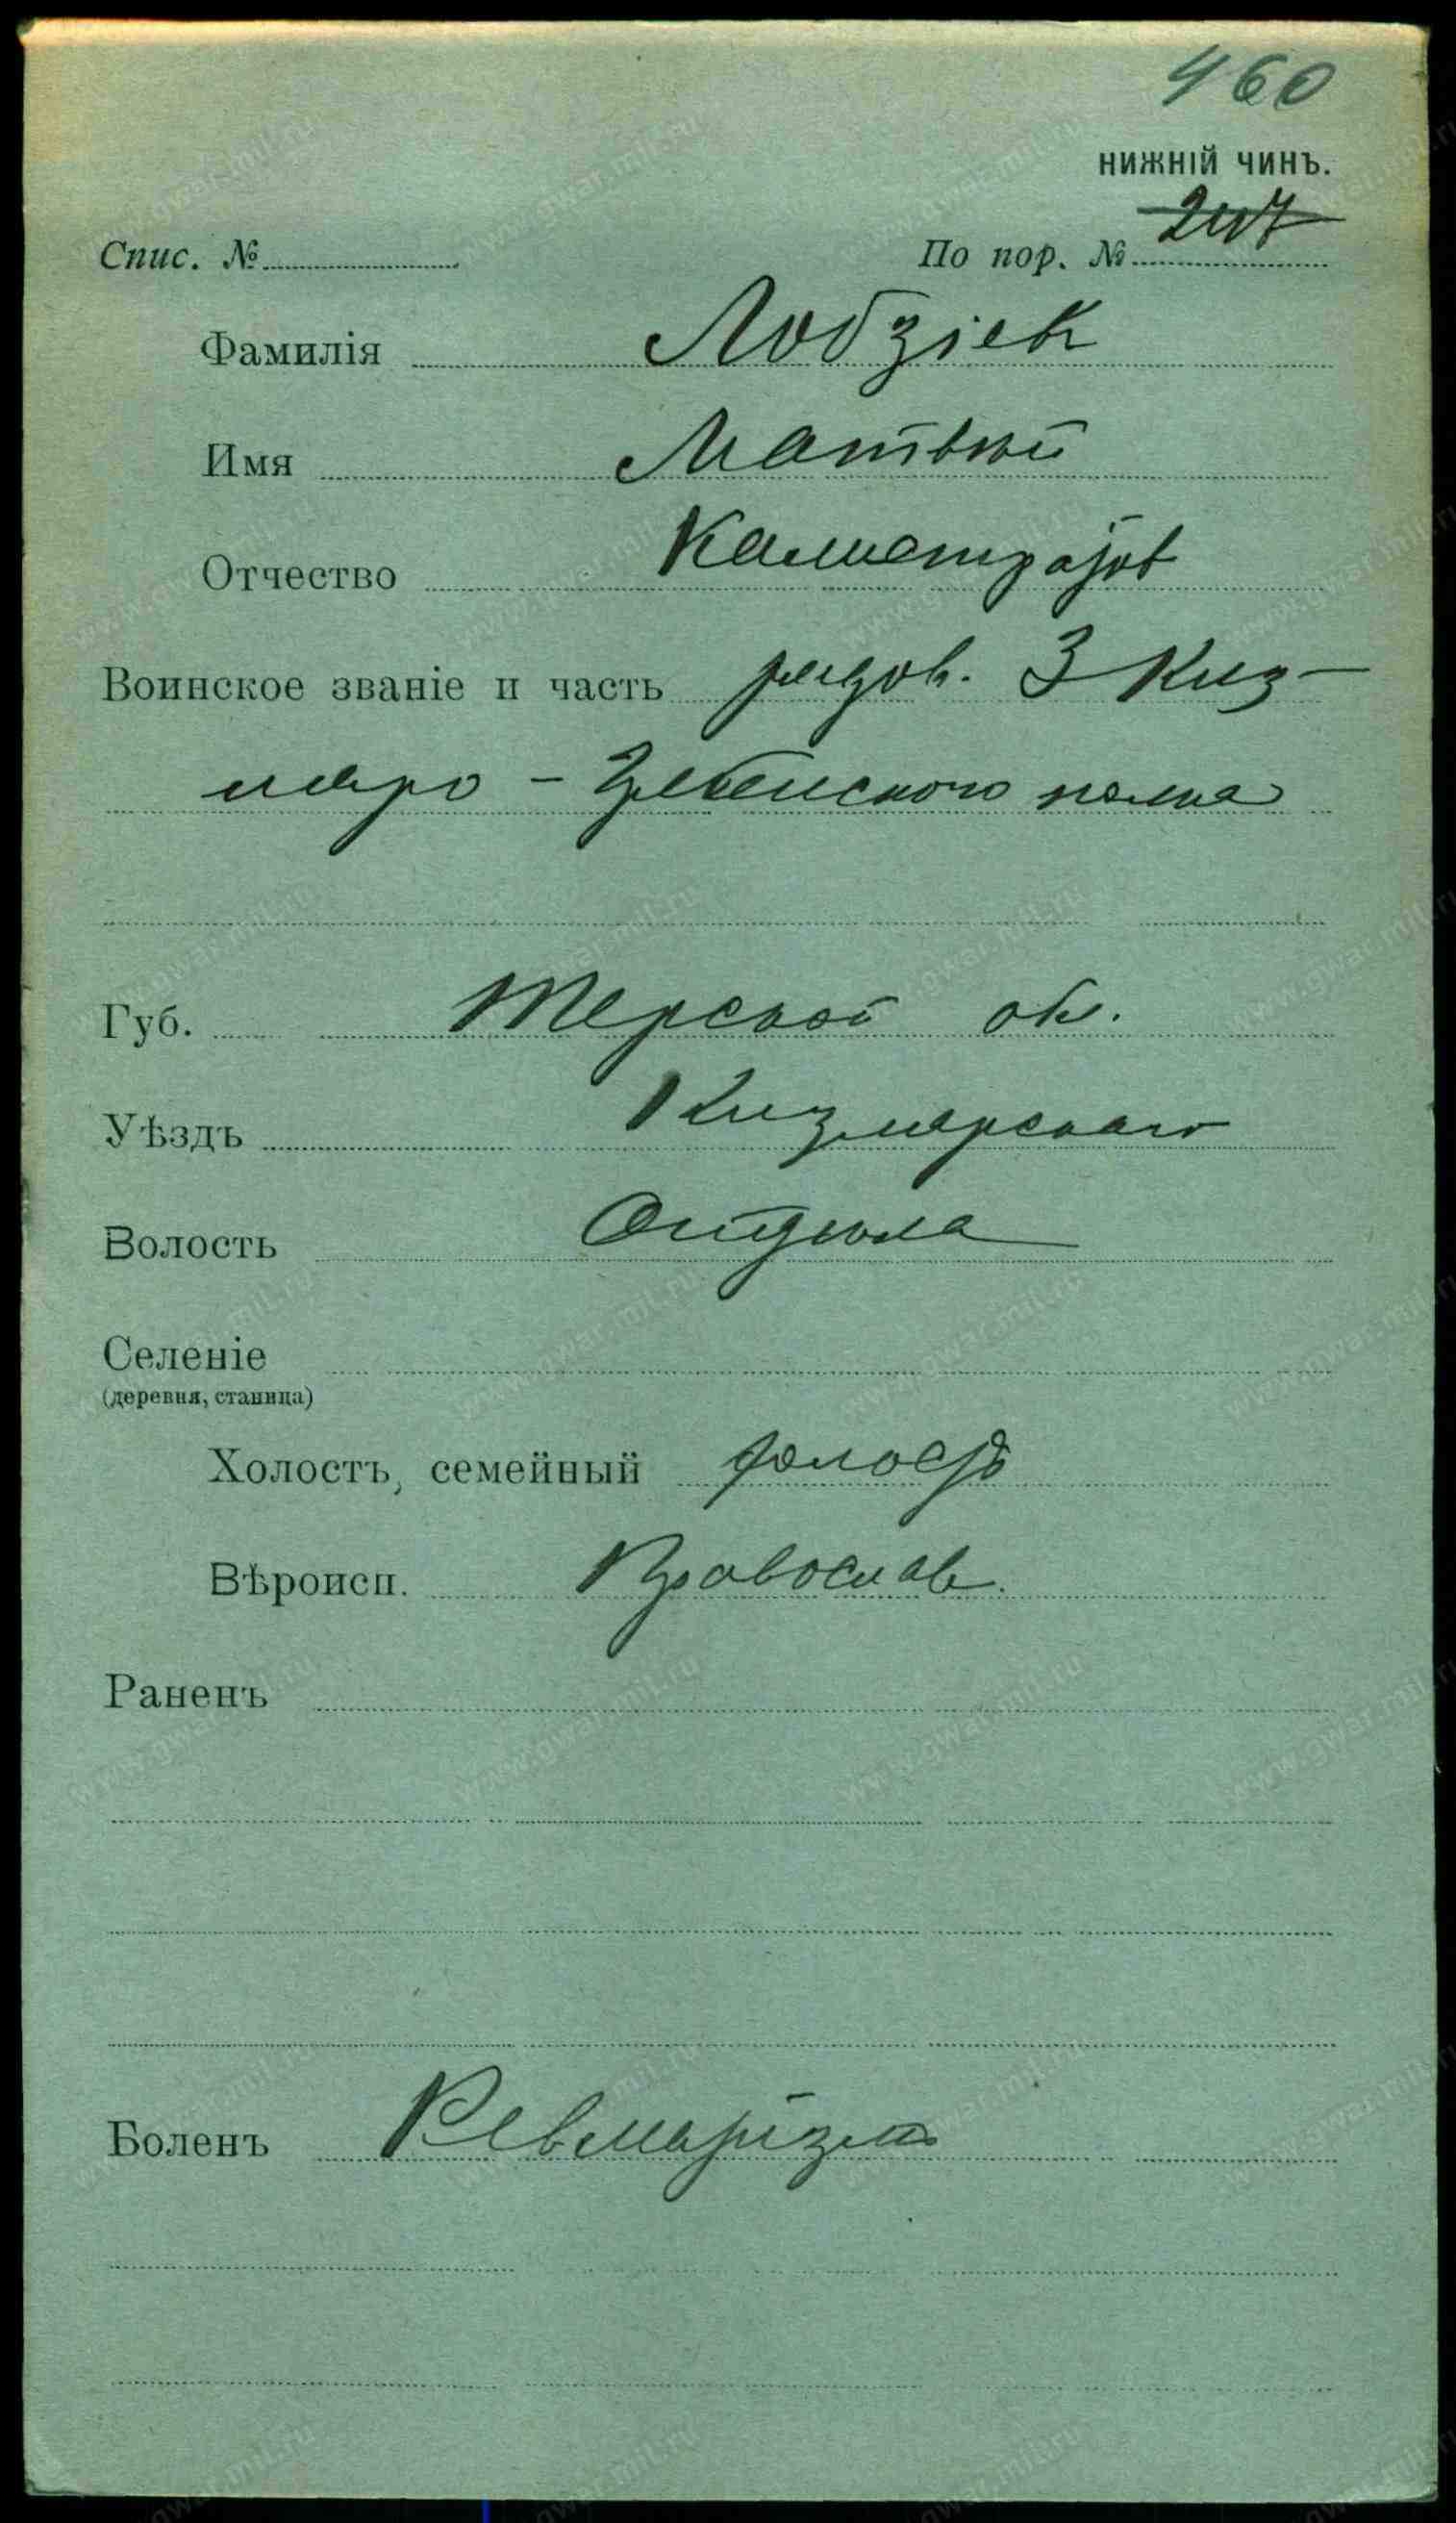 460
НИЖНІЙ ЧИНЪ.
Спис. № По пор. № 247
Фамилія Лобзіев
Имя Матвѣй
Отчество Калистратов
Воинское званіе и часть рядов. 3 Киз-
ляро - Гребенского полка
Губ. Терской обл.
Уѣздъ Кизлярскаго
Волость Отдѣла
Селеніе
(деревня, станица)
Холостъ, семейный холостъ
Вѣроисп. Православ.
Раненъ
Боленъ Ревматизм